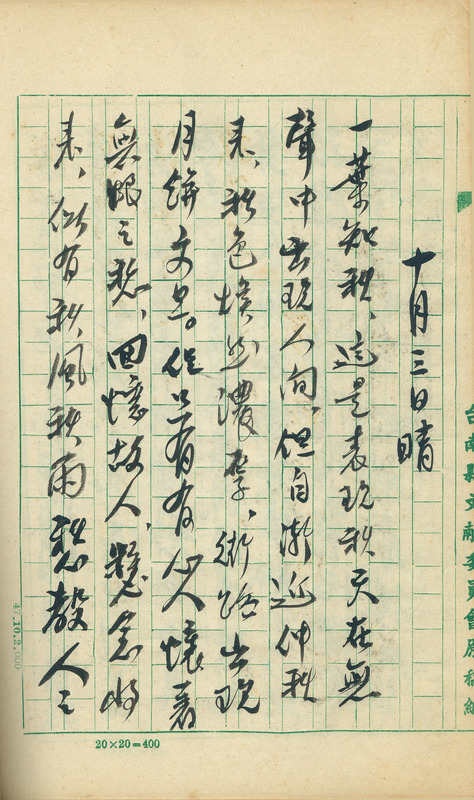 十月三日晴
一葉知秋、這是表現秋天在無
聲中出現人间、但自漸近仲秋
来、秋色 濃厚、街路出現
月餅文旦。但只有有心人懷着
無限之愁、回憶故人、懸念好
表、似有秋風秋雨愁殺人之
台南縣文献委員會原稿紙
47.10.2,000
20×20=400